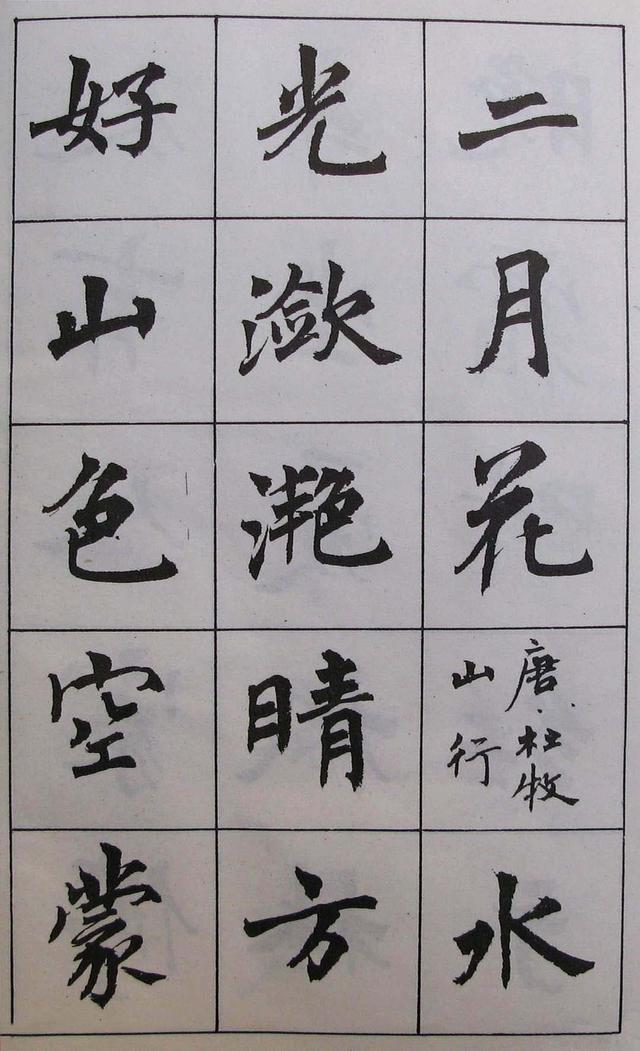 二月花
唐·杜牧
山行
水
光潋滟晴方
好山色空蒙